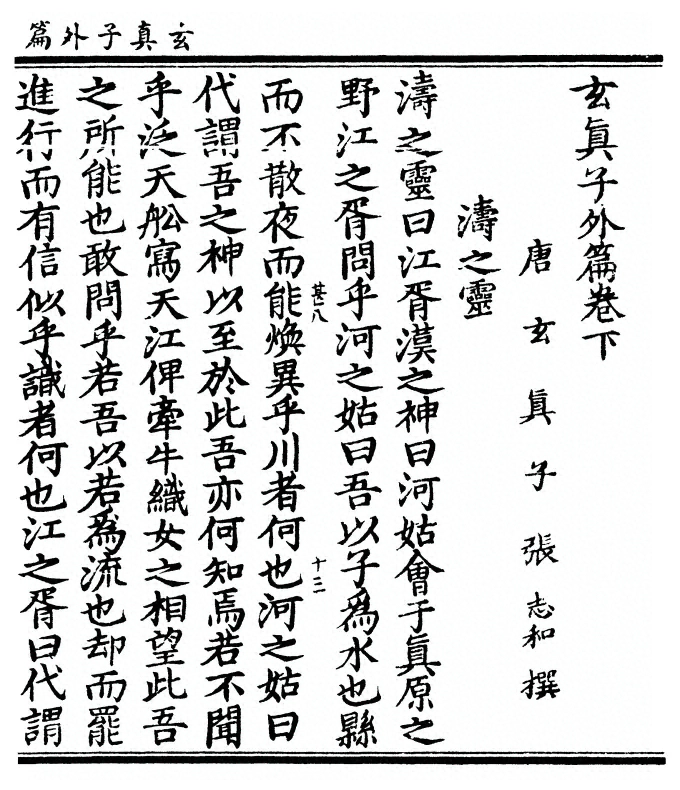 玄真子外篇
玄眞子外篇卷下
唐玄眞子張志和撰
濤之靈
濤之靈曰江胥漠之神曰河姑會于眞原之
野江之胥問乎河之姑曰吾以子爲水也縣
甚八 十三
而不散夜而能煥異乎川者何也河之姑曰
代謂吾之神以至於此吾亦何知焉若不聞
乎泛天舩寫天江俾牽牛織女之相望此吾
之所能也敢問乎若吾以若爲流也却而罷
進行而有信似乎識者何也江之胥曰代謂